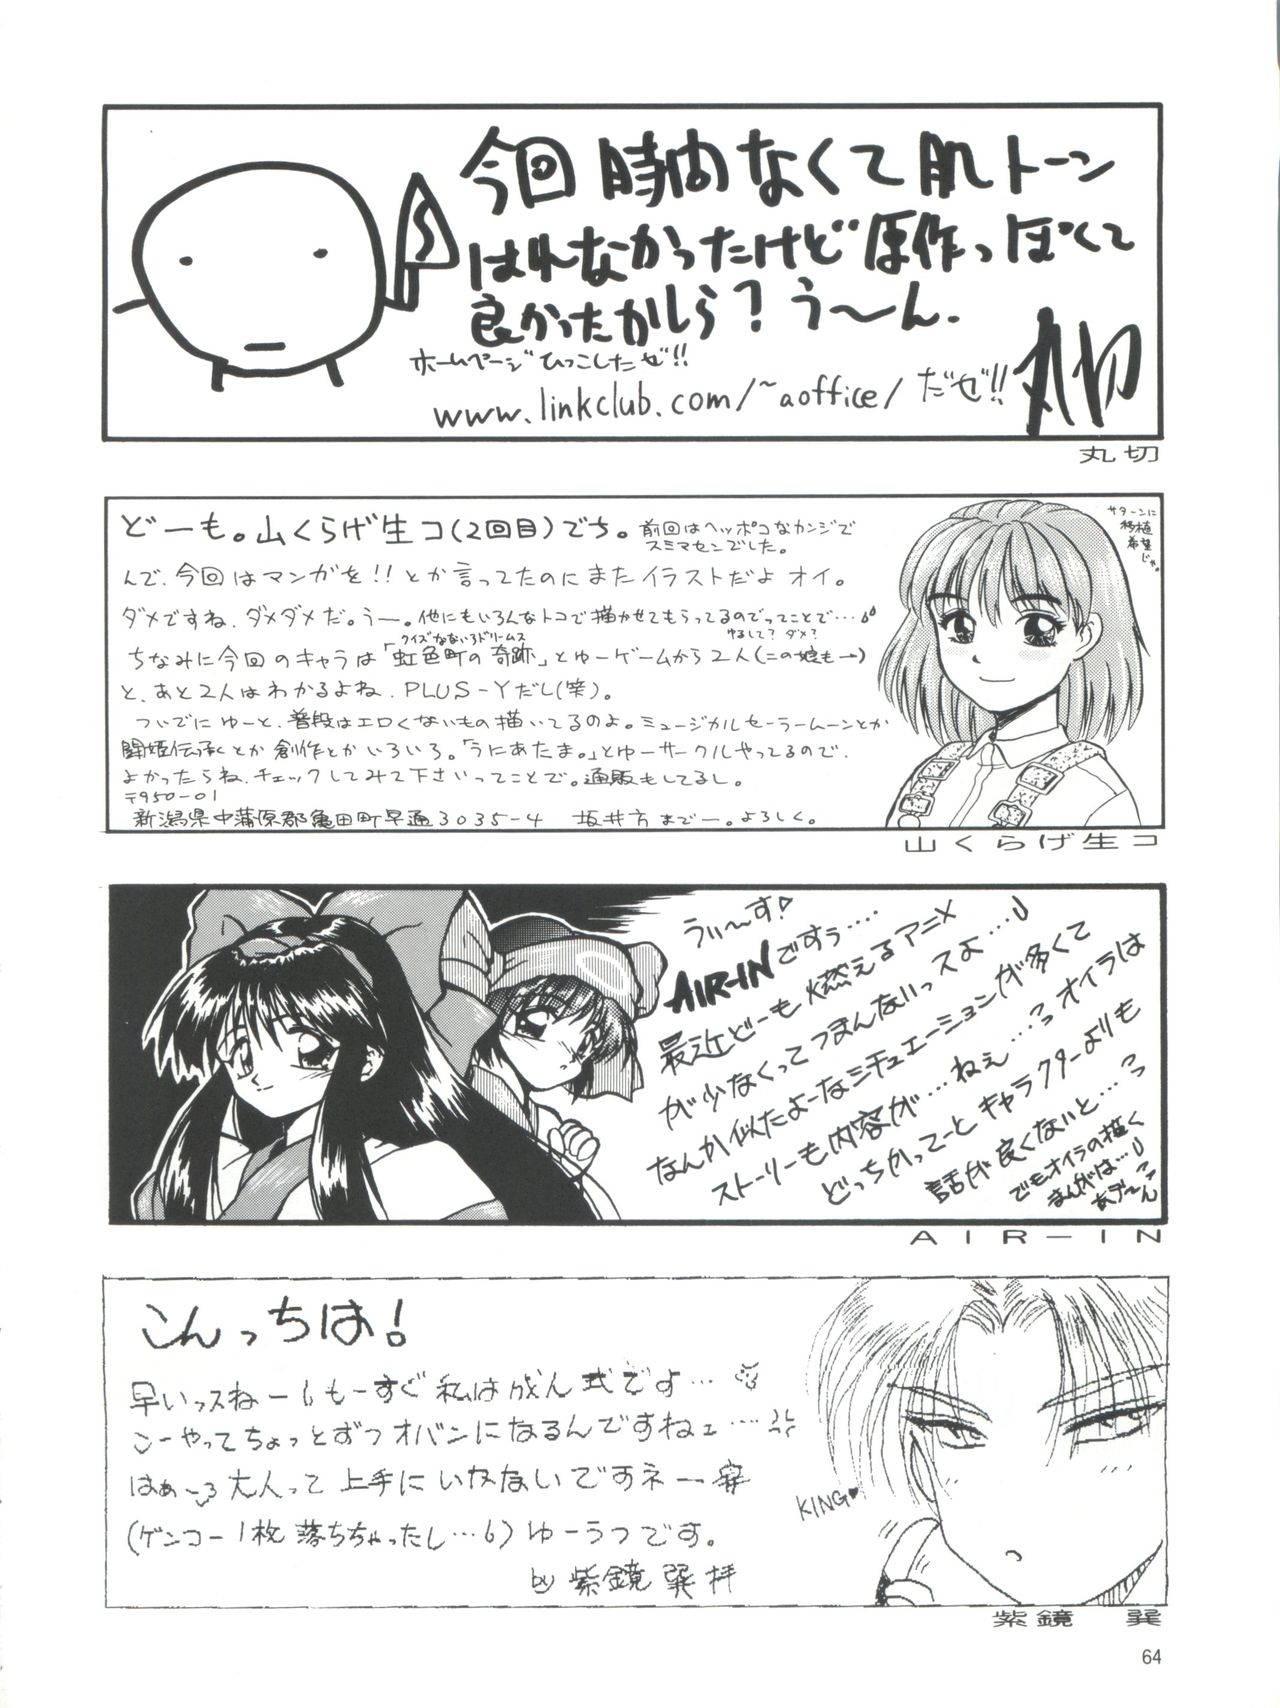 今回時間なくて肌トーン
はれなかったけど原作っぽくて
良かったかしら？う〜ん.
ホームページひっこしたぜ!!
www.linkclub.com/~aoffice/だぜ!!
丸切
丸切
どーも。山くらげ生コ(2回目)でち。前回はヘッポコなカンジで
スミマセンでした。
んで、今回はマンガを!!とか言ってたのにまたイラストだよオイ。
ダメですね、ダメダメだ。うー。他にもいろんなトコで描かせてもらってるのでってことで…
ゆるして？ダメ？
クイズなないろドリームス
ちなみに今回のキャラは「虹色町の奇跡」とゆーゲームから2人(この娘も→)
と、あと2人はわかるよね、PLUS-Yだし(笑)。
ついでにゆーと、普段はエロくないもの描いてるのよ。ミュージカルセーラームーンとか
闘姫伝承とか創作とかいろいろ。「うにあたま。」とゆーサークルやってるので、
よかったらね、チェックしてみて下さいってことで。通販もしてるし。
〒950-01
新潟県中蒲原郡亀田町早通3035-4 坂井方までー。よろしく。
サターンに
移植
希望
じゃ。
山くらげ生コ
うぃ〜す!
AIR-INですぅ‥‥
最近どーも燃えるアニメ
が少なくってつまんないっスよ…
なんか似たよーなシチュエーションが多くて
ストーリーも内容が…ねぇ…オイラは
どっちかってーとキャラクターよりも
話が良くないと…
でもオイラの描く
まんがは…
あう〜ん
AIR-IN
こんっちは!
早いっスねー もーすぐ私は成人式です…
こーやってちょっとずつオバンになるんですねェ…
はぁ〜 大人って上手にいかないですネー
(ゲンコー1枚落ちちゃったし…)ゆーうつです。
by 紫鏡 巽 拝
KING♥
紫鏡 巽
64